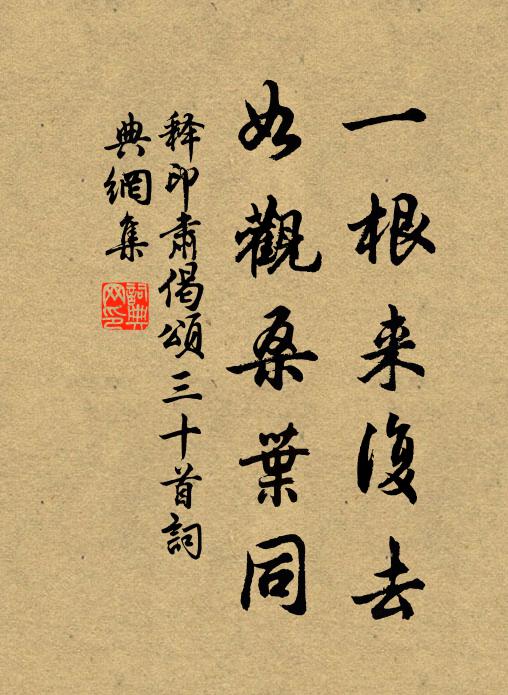 一根来復去
如觀桑葉同
释印肅偈頌三十首詞
典網集
詞典网印